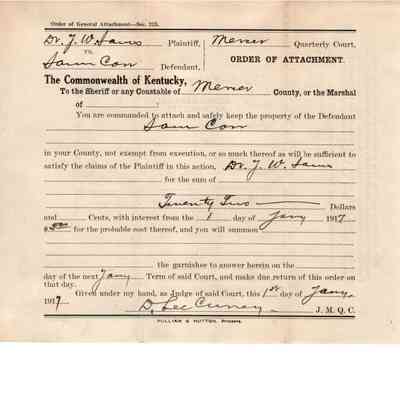 Order of General Attachment—Sec. 223.
Dr. J. W. Plaintiff, Mercer Quarterly Court,
vs. ORDER OF ATTACHMENT.
Defendant,
The Commonwealth of Kentucky,
To the Sheriff or any Constable of Mercer County, or the Marshal
of :
You are commanded to attach and safely keep the property of the Defendant
in your County, not exempt from execution, or so much thereof as will be sufficient to
satisfy the claims of the Plaintiff in this action, Dr. J. W.
for the sum of
Twenty Two Dollars
and Cents, with interest from the 1 day of Jany 1917
for the probable cost thereof, and you will summon
the garnishee to answer herein on the
day of the next Jany Term of said Court, and make due return of this order on
that day.
Given under my hand, as Judge of said Court, this 1st day of Jany.
1917
J. M. Q. C.
PULLIAM & HUTTON, Printers.